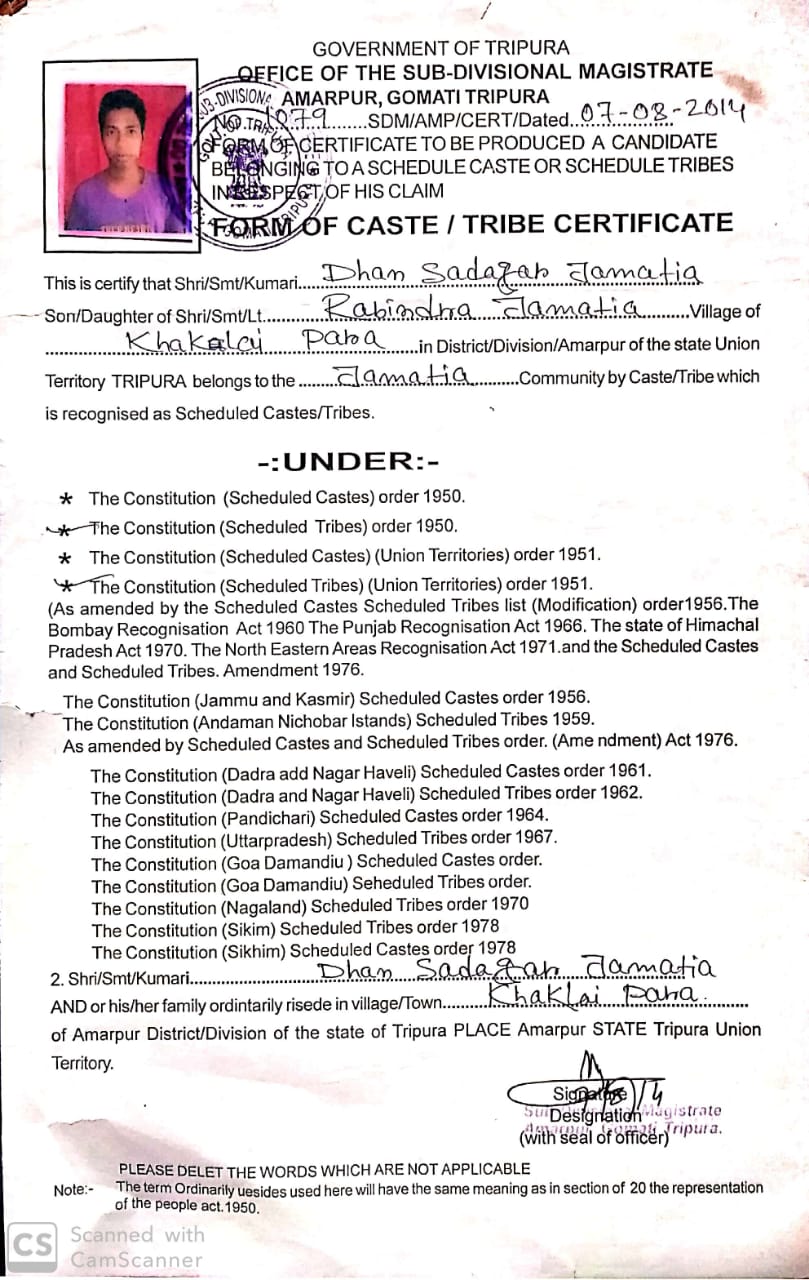 GOVERNMENT OF TRIPURA
OFFICE OF THE SUB-DIVISIONAL MAGISTRATE
AMARPUR, GOMATI TRIPURA
No. 1079.......SDM/AMP/CERT/Dated..07-08-2014
FORM OF CERTIFICATE TO BE PRODUCED A CANDIDATE
BELONGING TO A SCHEDULE CASTE OR SCHEDULE TRIBES
IN RESPECT OF HIS CLAIM
FORM OF CASTE / TRIBE CERTIFICATE
This is certify that Shri/Smt/Kumari....Dhan Sadagar Jamatia
Son/Daughter of Shri/Smt/Lt...........Rabindra Jamatia.........Village of
................Khakalai Para.......in District/Division/Amarpur of the state Union
Territory TRIPURA belongs to the .......Jamatia.........Community by Caste/Tribe which
is recognised as Scheduled Castes/Tribes.
-:UNDER:-
* The Constitution (Scheduled Castes) order 1950.
* The Constitution (Scheduled Tribes) order 1950.
* The Constitution (Scheduled Castes) (Union Territories) order 1951.
* The Constitution (Scheduled Tribes) (Union Territories) order 1951.
(As amended by the Scheduled Castes Scheduled Tribes list (Modification) order1956.The
Bombay Recognisation Act 1960 The Punjab Recognisation Act 1966. The state of Himachal
Pradesh Act 1970. The North Eastern Areas Recognisation Act 1971.and the Scheduled Castes
and Scheduled Tribes. Amendment 1976.
The Constitution (Jammu and Kasmir) Scheduled Castes order 1956.
The Constitution (Andaman Nichobar Istands) Scheduled Tribes 1959.
As amended by Scheduled Castes and Scheduled Tribes order. (Ame ndment) Act 1976.
The Constitution (Dadra add Nagar Haveli) Scheduled Castes order 1961.
The Constitution (Dadra and Nagar Haveli) Scheduled Tribes order 1962.
The Constitution (Pandichari) Scheduled Castes order 1964.
The Constitution (Uttarpradesh) Scheduled Tribes order 1967.
The Constitution (Goa Damandiu ) Scheduled Castes order.
The Constitution (Goa Damandiu) Seheduled Tribes order.
The Constitution (Nagaland) Scheduled Tribes order 1970
The Constitution (Sikim) Scheduled Tribes order 1978
The Constitution (Sikhim) Scheduled Castes order 1978
2. Shri/Smt/Kumari..........................Dhan Sadagar Jamatia
AND or his/her family ordintarily risede in village/Town.........Khaklai Para.........
of Amarpur District/Division of the state of Tripura PLACE Amarpur STATE Tripura Union
Territory.
Signature
Designation
(with seal of officer)
Sub Divisional Magistrate
Amarpur, Gomati Tripura.
PLEASE DELET THE WORDS WHICH ARE NOT APPLICABLE
Note:- The term Ordinarily uesides used here will have the same meaning as in section of 20 the representation
of the people act.1950.
CS Scanned with
CamScanner